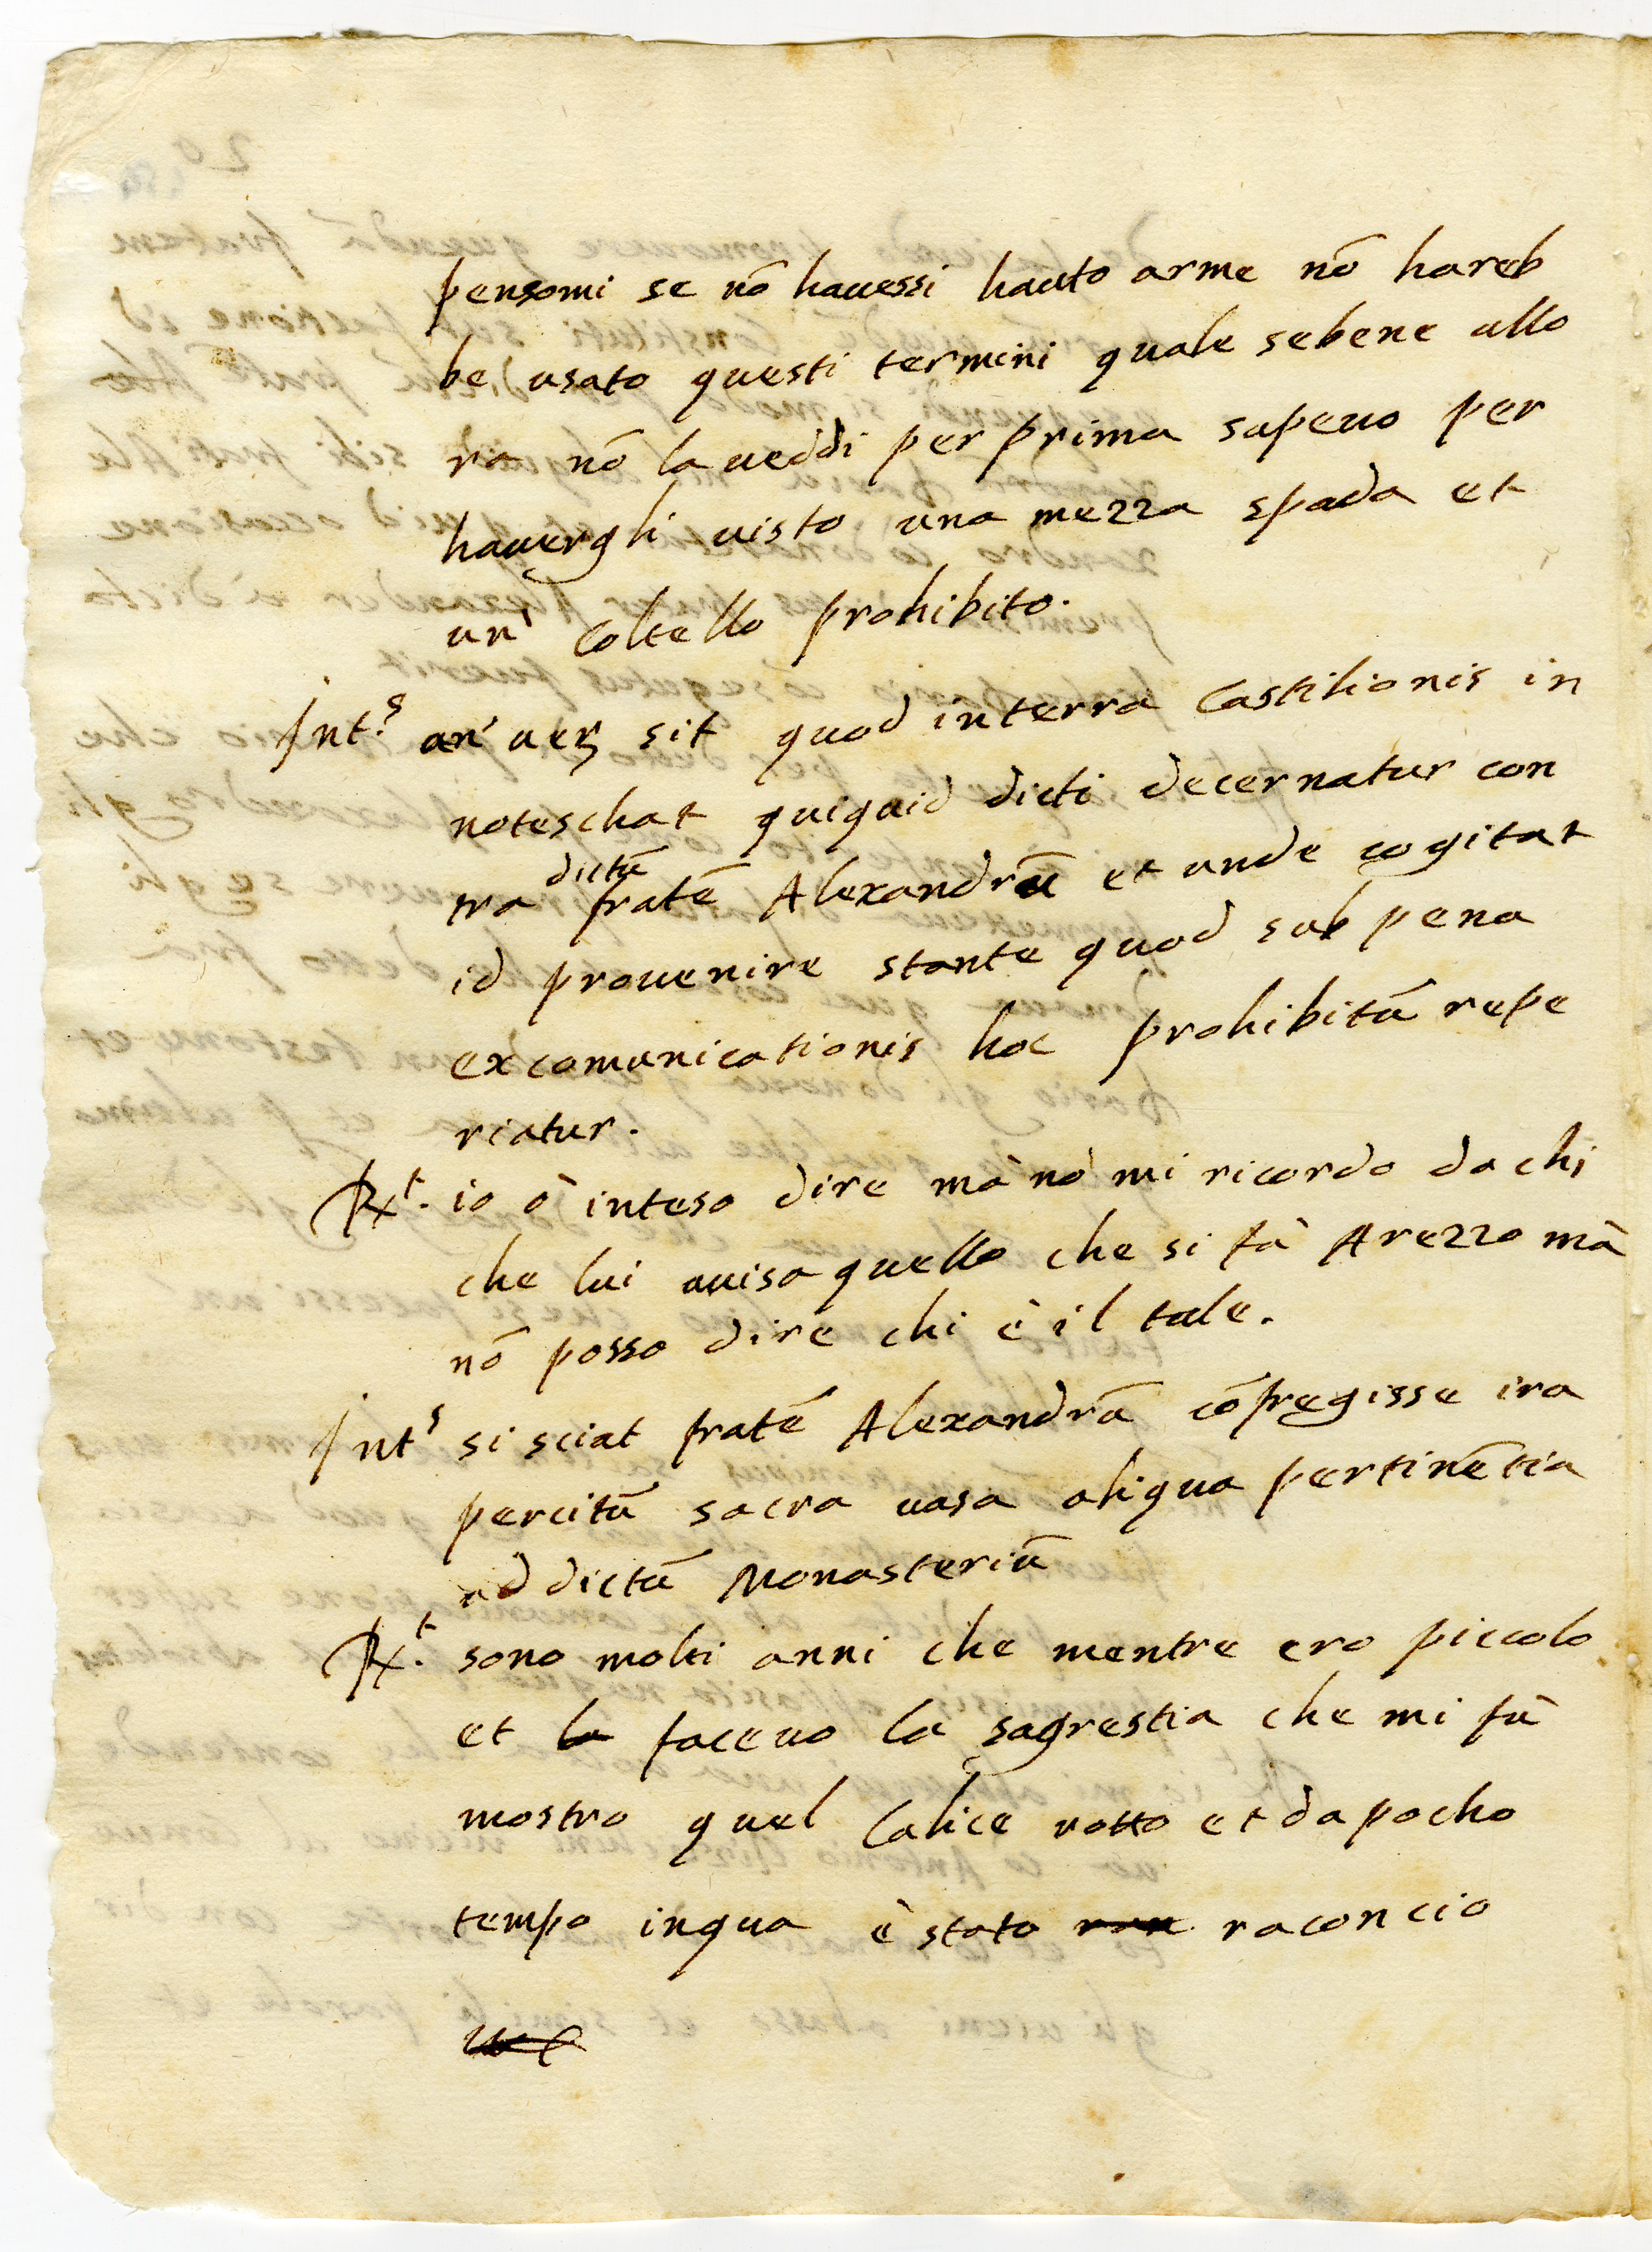 pensomi se nõ hauessi hauto arme nõ hareb
be usato questi termini quale sebene allo
ra nõ la ueddi per prima sapeuo per
hauergli uisto una mezza spada et
un' Coltello prohibito.
Int.s an' uerꝫ sit quod in terra Castilionis in
noteschat quiquid dicti decernatur con
tra dictũ fratẽ Alexandrũ et unde cogitat
id prouenire stante quod sub pena
excomunicationis hoc prohibitũ repe
riatur.
Rx.t io ò inteso dire mà nõ mi ricordo da chi
che lui auisa quello che si fà Arezzo mà
nõ posso dire chi è il tale.
Int.s si sciat fratẽ Alexandrũ cõfregisse ira
percitũ sacra uasa aliqua pertinẽtia
ad dictũ Monasteriũ
Rx.t sono molti anni che mentre ero piccolo
et la faceuo la sagrestia che mi fù
mostro quel Calice rotto et da pocho
tempo inqua è stato racconcio